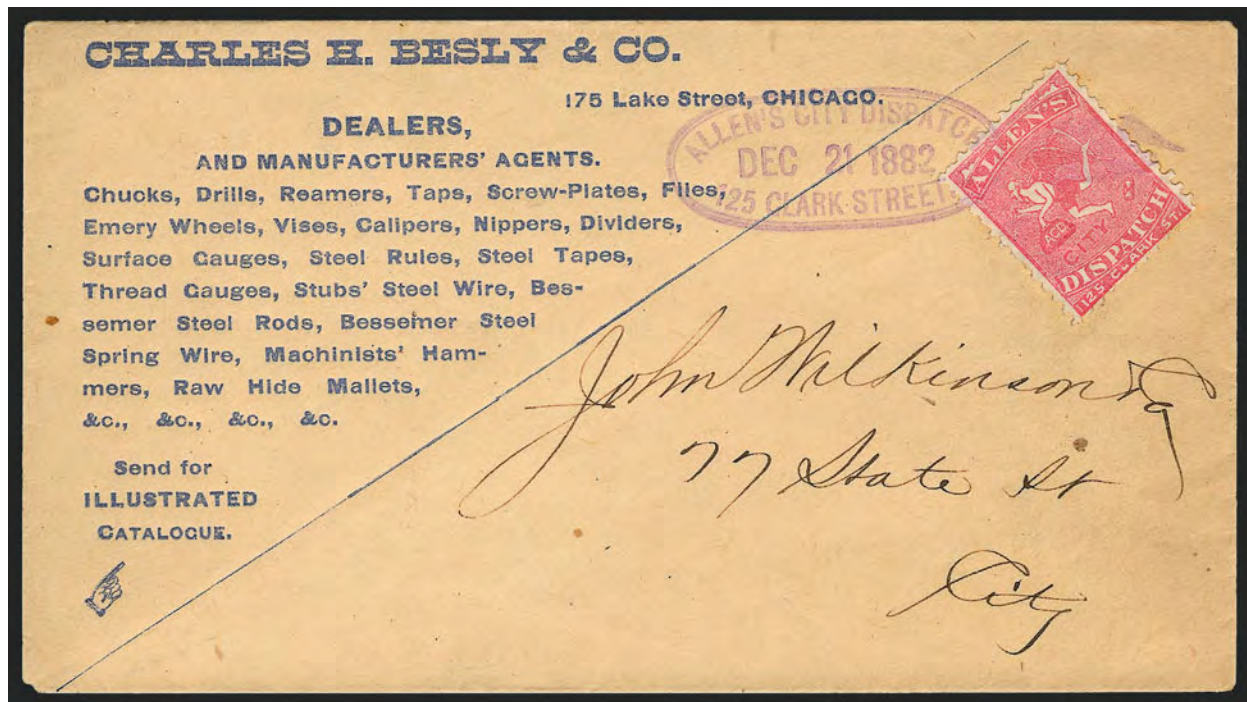 CHARLES H. BESLY & CO.
175 Lake Street, CHICAGO.
DEALERS,
AND MANUFACTURERS' AGENTS.
Chucks, Drills, Reamers, Taps, Screw-Plates, Files,
Emery Wheels, Vises, Calipers, Nippers, Dividers,
Surface Gauges, Steel Rules, Steel Tapes,
Thread Gauges, Stubs' Steel Wire, Bes-
semer Steel Rods, Bessemer Steel
Spring Wire, Machinists' Ham-
mers, Raw Hide Mallets,
&c., &c., &c., &c.
Send for
ILLUSTRATED
CATALOGUE.
ALLEN'S CITY DISPATCH
DEC 21 1882
125 CLARK STREET
ALLEN'S
ACD
CITY
DISPATCH
125 CLARK ST.
John Wilkinson Esq
77 State St
City